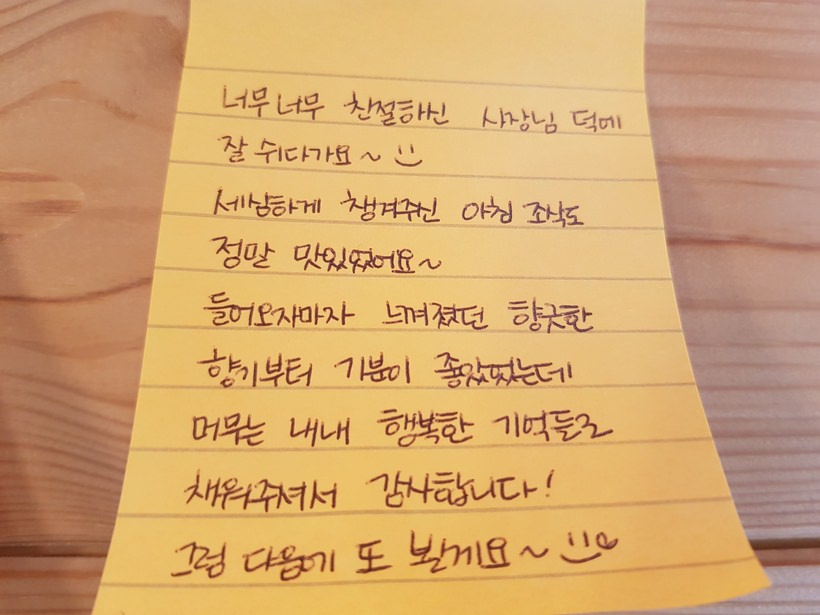 너무너무 친절하신 사장님 덕에
잘 쉬다가요~ :)
세심하게 챙겨주신 아침 조식도
정말 맛있었어요~
들어오자마자 느껴졌던 향긋한
향기부터 기분이 좋았었는데
머무는 내내 행복한 기억들로
채워주셔서 감사합니다!
그럼 다음에 또 뵐게요~ :)